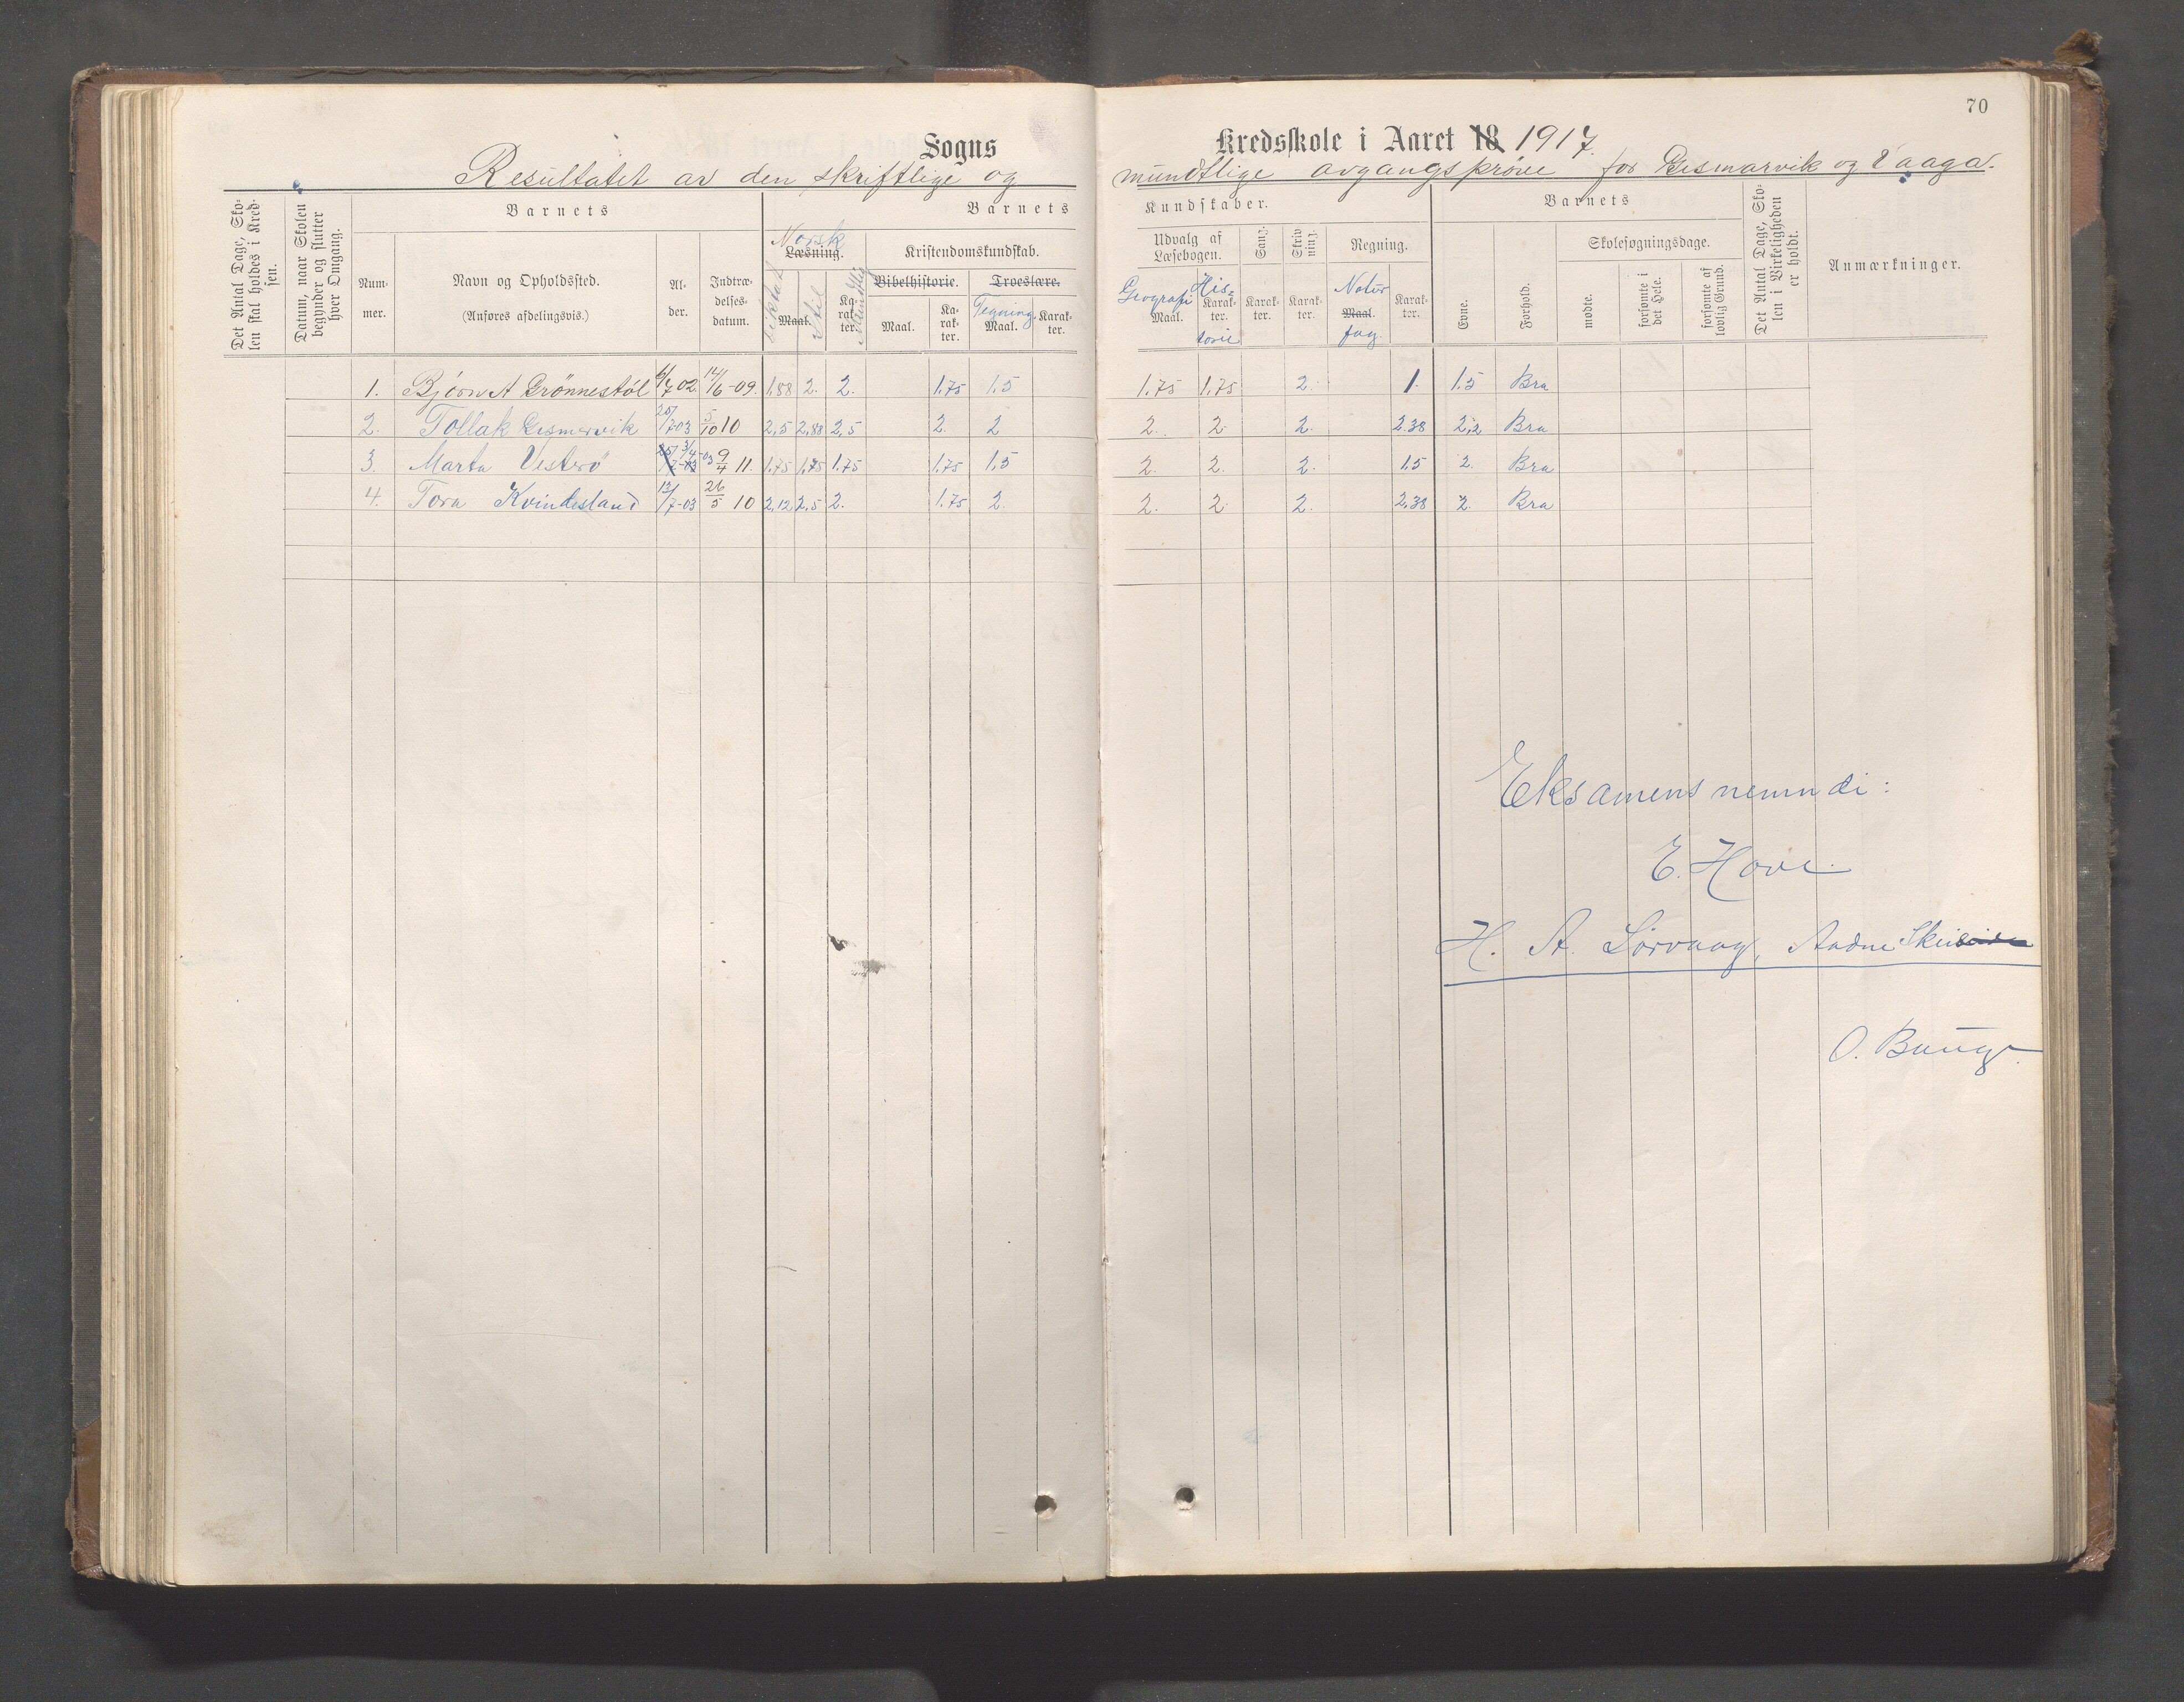 70
Sogns Kredsskole i Aaret 18 1917.
Resultatet av den skriftlige og mundtlige avgangsprøve for Gismarvik og Vaaga.
Det Antal Dage, Skolen skal holdes i Kredsen.
Datum, naar Skolen begynder og slutter hver Omgang.
Barnets
Nummer.
Navn og Opholdssted.
(Anføres afdelingsvis.)
Alder.
Indtrædelsesdatum.
Barnets Kundskaber.
Norsk
Læsning.
Diktat Maal. Stil Karakter. Mundtlig
Kristendomskundskab.
Bibelhistorie. Troeslære.
Maal. Karakter. Tegning Maal. Karakter.
Udvalg af Læsebogen.
Geografi Maal. Historie Karakter.
Sang. Karakter.
Skrivning. Karakter.
Regning.
Naturfag. Maal. Karakter.
Barnets
Evne. Forhold.
Skolesøgningsdage.
mødte. forsømte i det Hele. forsømte af lovlig Grund.
Det Antal Dage, Skolen i Virkeligheden er holdt.
Anmærkninger.
1. Bjørn A Grönnestöl 6/7 02. 14/6-09. 1,88 2. 2. 1.75 1.5 1.75 1.75 2. 1. 1.5 Bra
2. Tollak Gismervik 25/7-03 5/10 10 2,5 2,88 2,5 2. 2 2. 2. 2. 2.38 2,2 Bra
3. Marta Vesterö 25/7-03 3/4-03 9/4 11. 1.75 1.75 1.75 1.75 1.5 2. 2. 2. 1.5 2. Bra
4. Tora Kvindesland 13/7-03 26/5 10 2,12 2,5 2. 1.75 2. 2. 2. 2. 2,38 2. Bra
Eksamensnemndi:
E. Hove
H. A. Sörvaag, Aadne
O. Bauge.